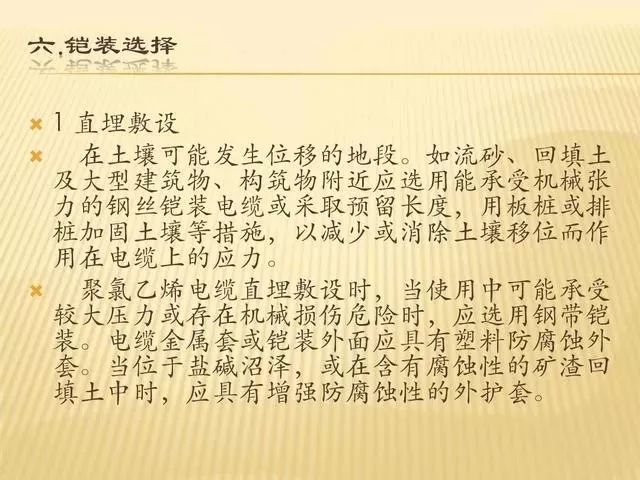 六,铠装选择
1 直埋敷设
在土壤可能发生位移的地段。如流砂、回填土
及大型建筑物、构筑物附近应选用能承受机械张
力的钢丝铠装电缆或采取预留长度，用板桩或排
桩加固土壤等措施，以减少或消除土壤移位而作
用在电缆上的应力。
聚氯乙烯电缆直埋敷设时，当使用中可能承受
较大压力或存在机械损伤危险时，应选用钢带铠
装。电缆金属套或铠装外面应具有塑料防腐蚀外
套。当位于盐碱沼泽，或在含有腐蚀性的矿渣回
填土中时，应具有增强防腐蚀性的外护套。